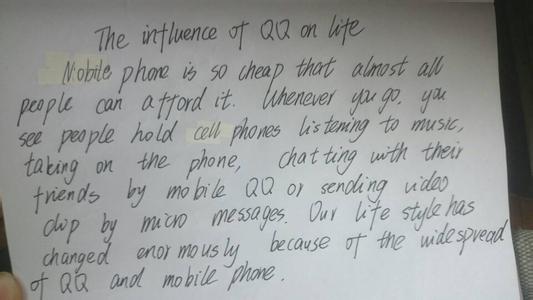 The influence of QQ on life
Mobile phone is so cheap that almost all
people can afford it. Whenever you go, you
see people hold cell phones listening to music,
taking on the phone, chatting with their
friends by mobile QQ or sending video
clip by micro messages. Our life style has
changed enormously because of the widespread
of QQ and mobile phone.